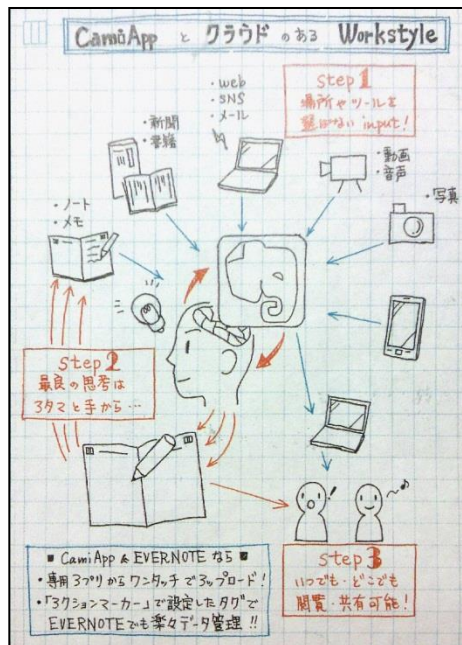 CamiApp と クラウド のある Workstyle
Step 1
場所やツールを
選ばない input!
・web
・SNS
・メール
・新聞
・書籍
・動画
・音声
・写真
・ノート
・メモ
Step 2
最良の思考は
アタマと手から…
Step 3
いつでも・どこでも
閲覧・共有可能!
■ CamiApp & EVERNOTE なら ■
・専用アプリからワンタッチでアップロード!
・「アクションマーカー」で設定したタグで
EVERNOTEでも楽々データ管理!!